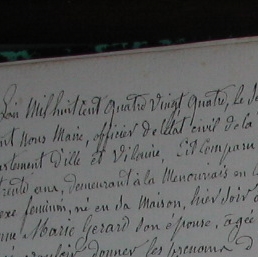 L'an Mil huit cent quatre vingt quatre, le
nous Maire, officier de l'état civil de la
artement d'Ille et Vilaine, Est Comparu
trente ans, demeurant à la
exe féminin, né en sa Maison, hier soir
Marie Gerard son épouse, agée
vouloir donner les prénoms d